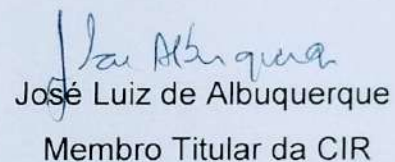 José Luiz de Albuquerque
Membro Titular da CIR